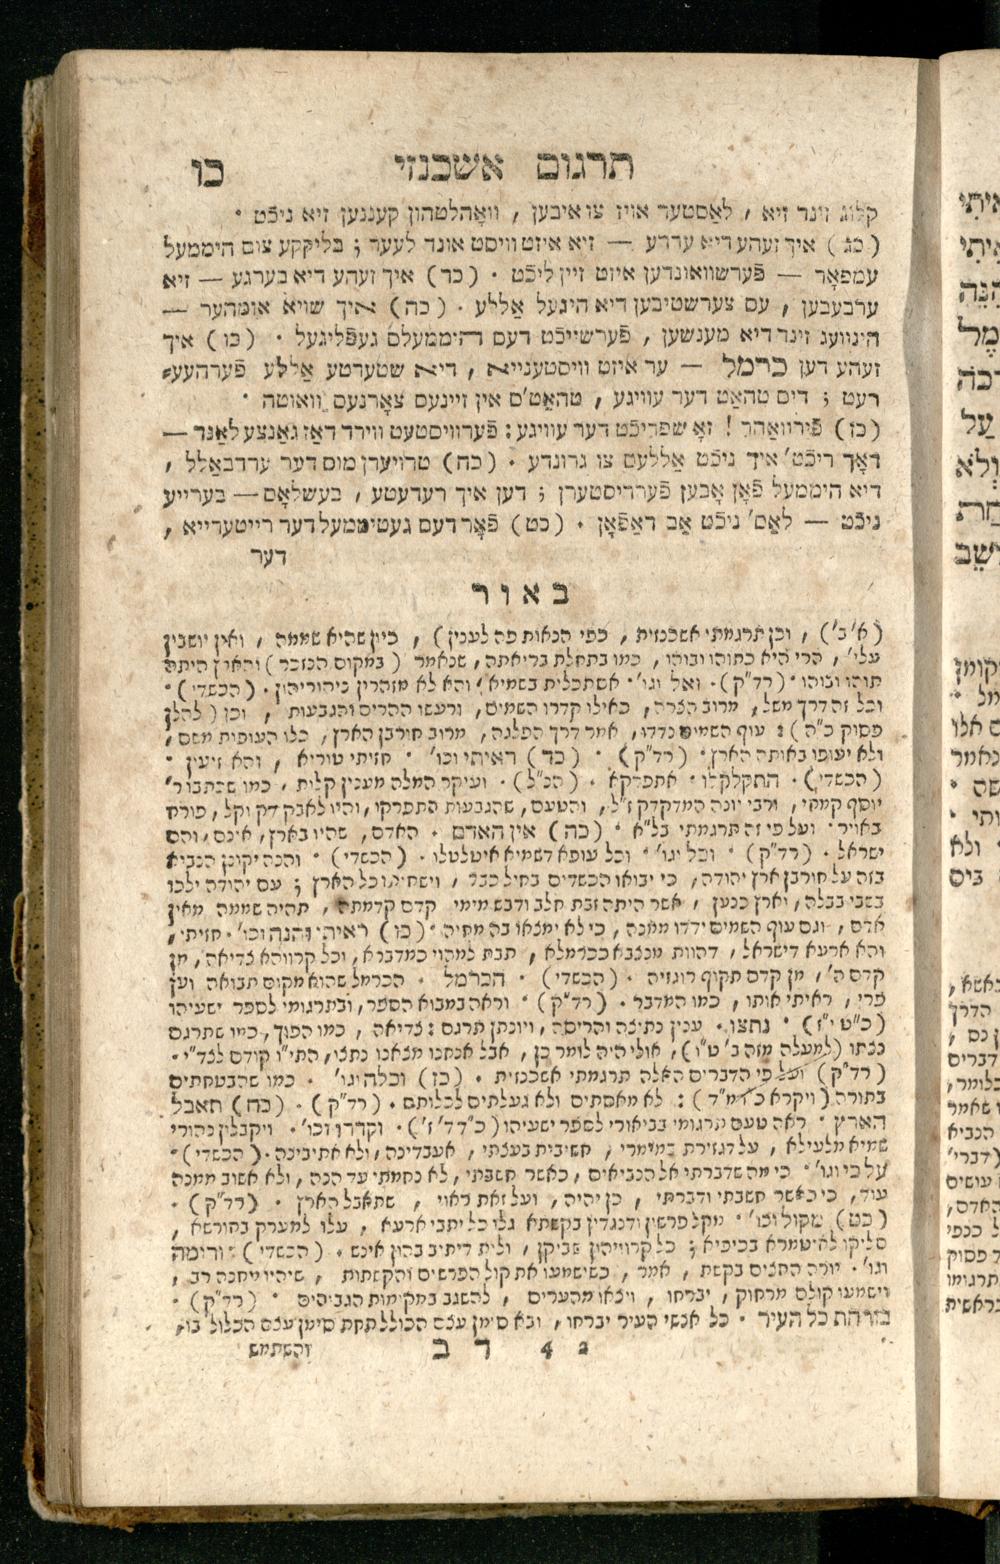 תרגום אשכנזי כו
קלוג זינד זיא , לאַסטער אויז צו איבען , וואָהלטהון קעננען זיא ניכֿט •
(כג) איך זעהע דיא ערדע — זיא איזט וויסט אונד לעער ; בליקקע צום היממעל
עמפאָר — פֿערשוואונדען איזט זיין ליכֿט • (כד) איך זעהע דיא בערגע — זיא
ערבעבען , עס צערשטיבען דיא היגעל אַללע • (כה) איך שויא אומהער —
הינוועג זינד דיא מענשען , פֿערשייכֿט דעס היממעלס געפֿליגעל • (כו) איך
זעהע דען כרמל — ער איזט וויסטענייא , דיא שטערטע אַללע פֿערהעע=
רעט ; דיס טהאַט דער עוויגע , טהאַט'ס אין זיינעם צאָרנעס וואוטה •
(כז) פֿירוואהר ! זאָ שפריכֿט דער עוויגע : פֿערוויסטעט ווירד דאַז גאַנצע לאַנד —
דאָך ריכֿט' איך ניכֿט אַללעס צו גרונדע • (כח) טרויערן מוס דער ערדבאַלל ,
דיא היממעל פֿאָן אָבען פֿערדיסטערן ; דען איך רעדעטע , בעשלאָס — בערייע
ניכֿט — לאַס' ניכֿט אַב דאַפֿאָן • (כט) פֿאָר דעם געטיממעל דער רייטערייא ,
דער
באור
(א'ב') , וכן תרגמתי אשכנזית , כפי הנאות פה לענין) , כיון שהיא שממה , ואין יושבין
עלי' , הרי היא כתוהו ובוהו , כמו בתחלת בריאתה , שנאמר (במקום הנזכר) והארץ היתה
תוהו ובוהו • (רד"ק) • ואל וגו' • אסתכלית בשמיא , והא לא מזהרין ניהוריהון • (הכשדי) •
וכל זה דרך משל , מרוב הצרה , כאילו קדרו השמים , ורעשו ההרים והגבעות , וכן (להלן
פסוק כ"ה) : עוף השמים נדדו , אמר דרך הפלגה , מרוב חורבן הארץ , כלו העופות משם ,
ולא יעופו באותה הארץ • (רד"ק) • (כד) ראיתי וכו' • חזיתי טוריא , והא זיעין •
(הכשדי) • התקלקלו • אתפרקא • (הנ"ל) • ועיקר המלה מענין קלות , כמו שכתבו ר'
יוסף קמחי , ורבי יונה המדקדק ז"ל , והטעם , שהגבעות התפרקו , והיו לאבק דק וקל , פורח
באויר • ועל פי זה תרגמתי בל"א • (כה) אין האדם • האדם , שהיו בארץ , אינם , והם
ישראל • (רד"ק) • וכל וגו' • וכל עופא דשמיא איטלטלו • (הכשדי) • והנה יקונן הנביא
בזה על חורבן ארץ יהודה , כי יבואו הכשדים בחיל כבד , וישחיתו כל הארץ ; עם יהודה ילכו
בשבי בבלה , וארץ כנען , אשר היתה זבת חלב ודבש מימי קדם קדמתה , תהיה שממה מאין
אדם , וגם עוף השמים ידדו ממנה , כי לא ימצאו בה מחיה • (כו) ראיתי והנה וכו' • חזיתי ,
והא ארעא דישראל , דהוות מנצבא ככרמלא , תבת למהוי כמדברא , וכל קרווהא צדיאה , מן
קדם ה' , מן קדם תקוף רוגזיה • (הכשדי) • הכרמל • הכרמל שהוא מקום תבואה ועץ
פרי , ראיתי אותו , כמו המדבר • (רד"ק) • וראה במבוא הספר , ובתרגומי לספר ישעיהו
(כ"ט י"ז) • נתצו • ענין נתיצה והריסה , ויונתן תרגם : צדיאה , כמו הפוך , כמו שתרגם
נצתו (למעלה מזה ב' ט"ו) , אולי היה לומר כן , אבל אנחנו מצאנו נתצו , התי"ו קודם לצד"י •
(רד"ק) ועל פי הדברים האלה תרגמתי אשכנזית • (כז) וכלה וגו' • כמו שהבטחתים
בתורה (ויקרא כ"ו מ"ד) : לא מאסתים ולא געלתים לכלותם • (רד"ק) • (כח) תאבל
הארץ • ראה טעם תרגומי בביאורי לספר ישעיהו (כ"ד ד' ז') • וקדרו וכו' • ויקבלין נהורי
שמיא מלעילא , על דגזירת במימרי , חשיבית בעצתי , אעבדינה , ולא אתיבינה • (הכשדי) •
על כי וגו' • כי מה שדברתי אל הנביאים , כאשר חשבתי , לא נחמתי עד הנה , ולא אשוב ממנה
עוד , כי כאשר חשבתי ודברתי , כן יהיה , ועל זאת ראוי , שתאבל הארץ • (רד"ק) •
(כט) מקול וכו' • מקל פרשין ודנגדין בקשתא גלו כל יתבי ארעא , עלו למערק בחורשא ,
סליקו לאיטמרא בכיפיא ; כל קרוויהון שביקן , ולית דיתיב בהון אינש • (הכשדי) • ורומה
וגו' • יורה החצים בקשת , אמר , כשישמעו את קול הפרשים והקשתות , שיהיו מחנה רב ,
וישמעו קולם מרחוק , יברחו , ויצאו מהערים , להשגב במקומות הגביהים • (רד"ק) •
בורחת כל העיר • כל אנשי העיר יברחו , ובא סימן עצם הכולל תחת סימן עצם הכלול בו ,
ב 4 ר ב והשתמש